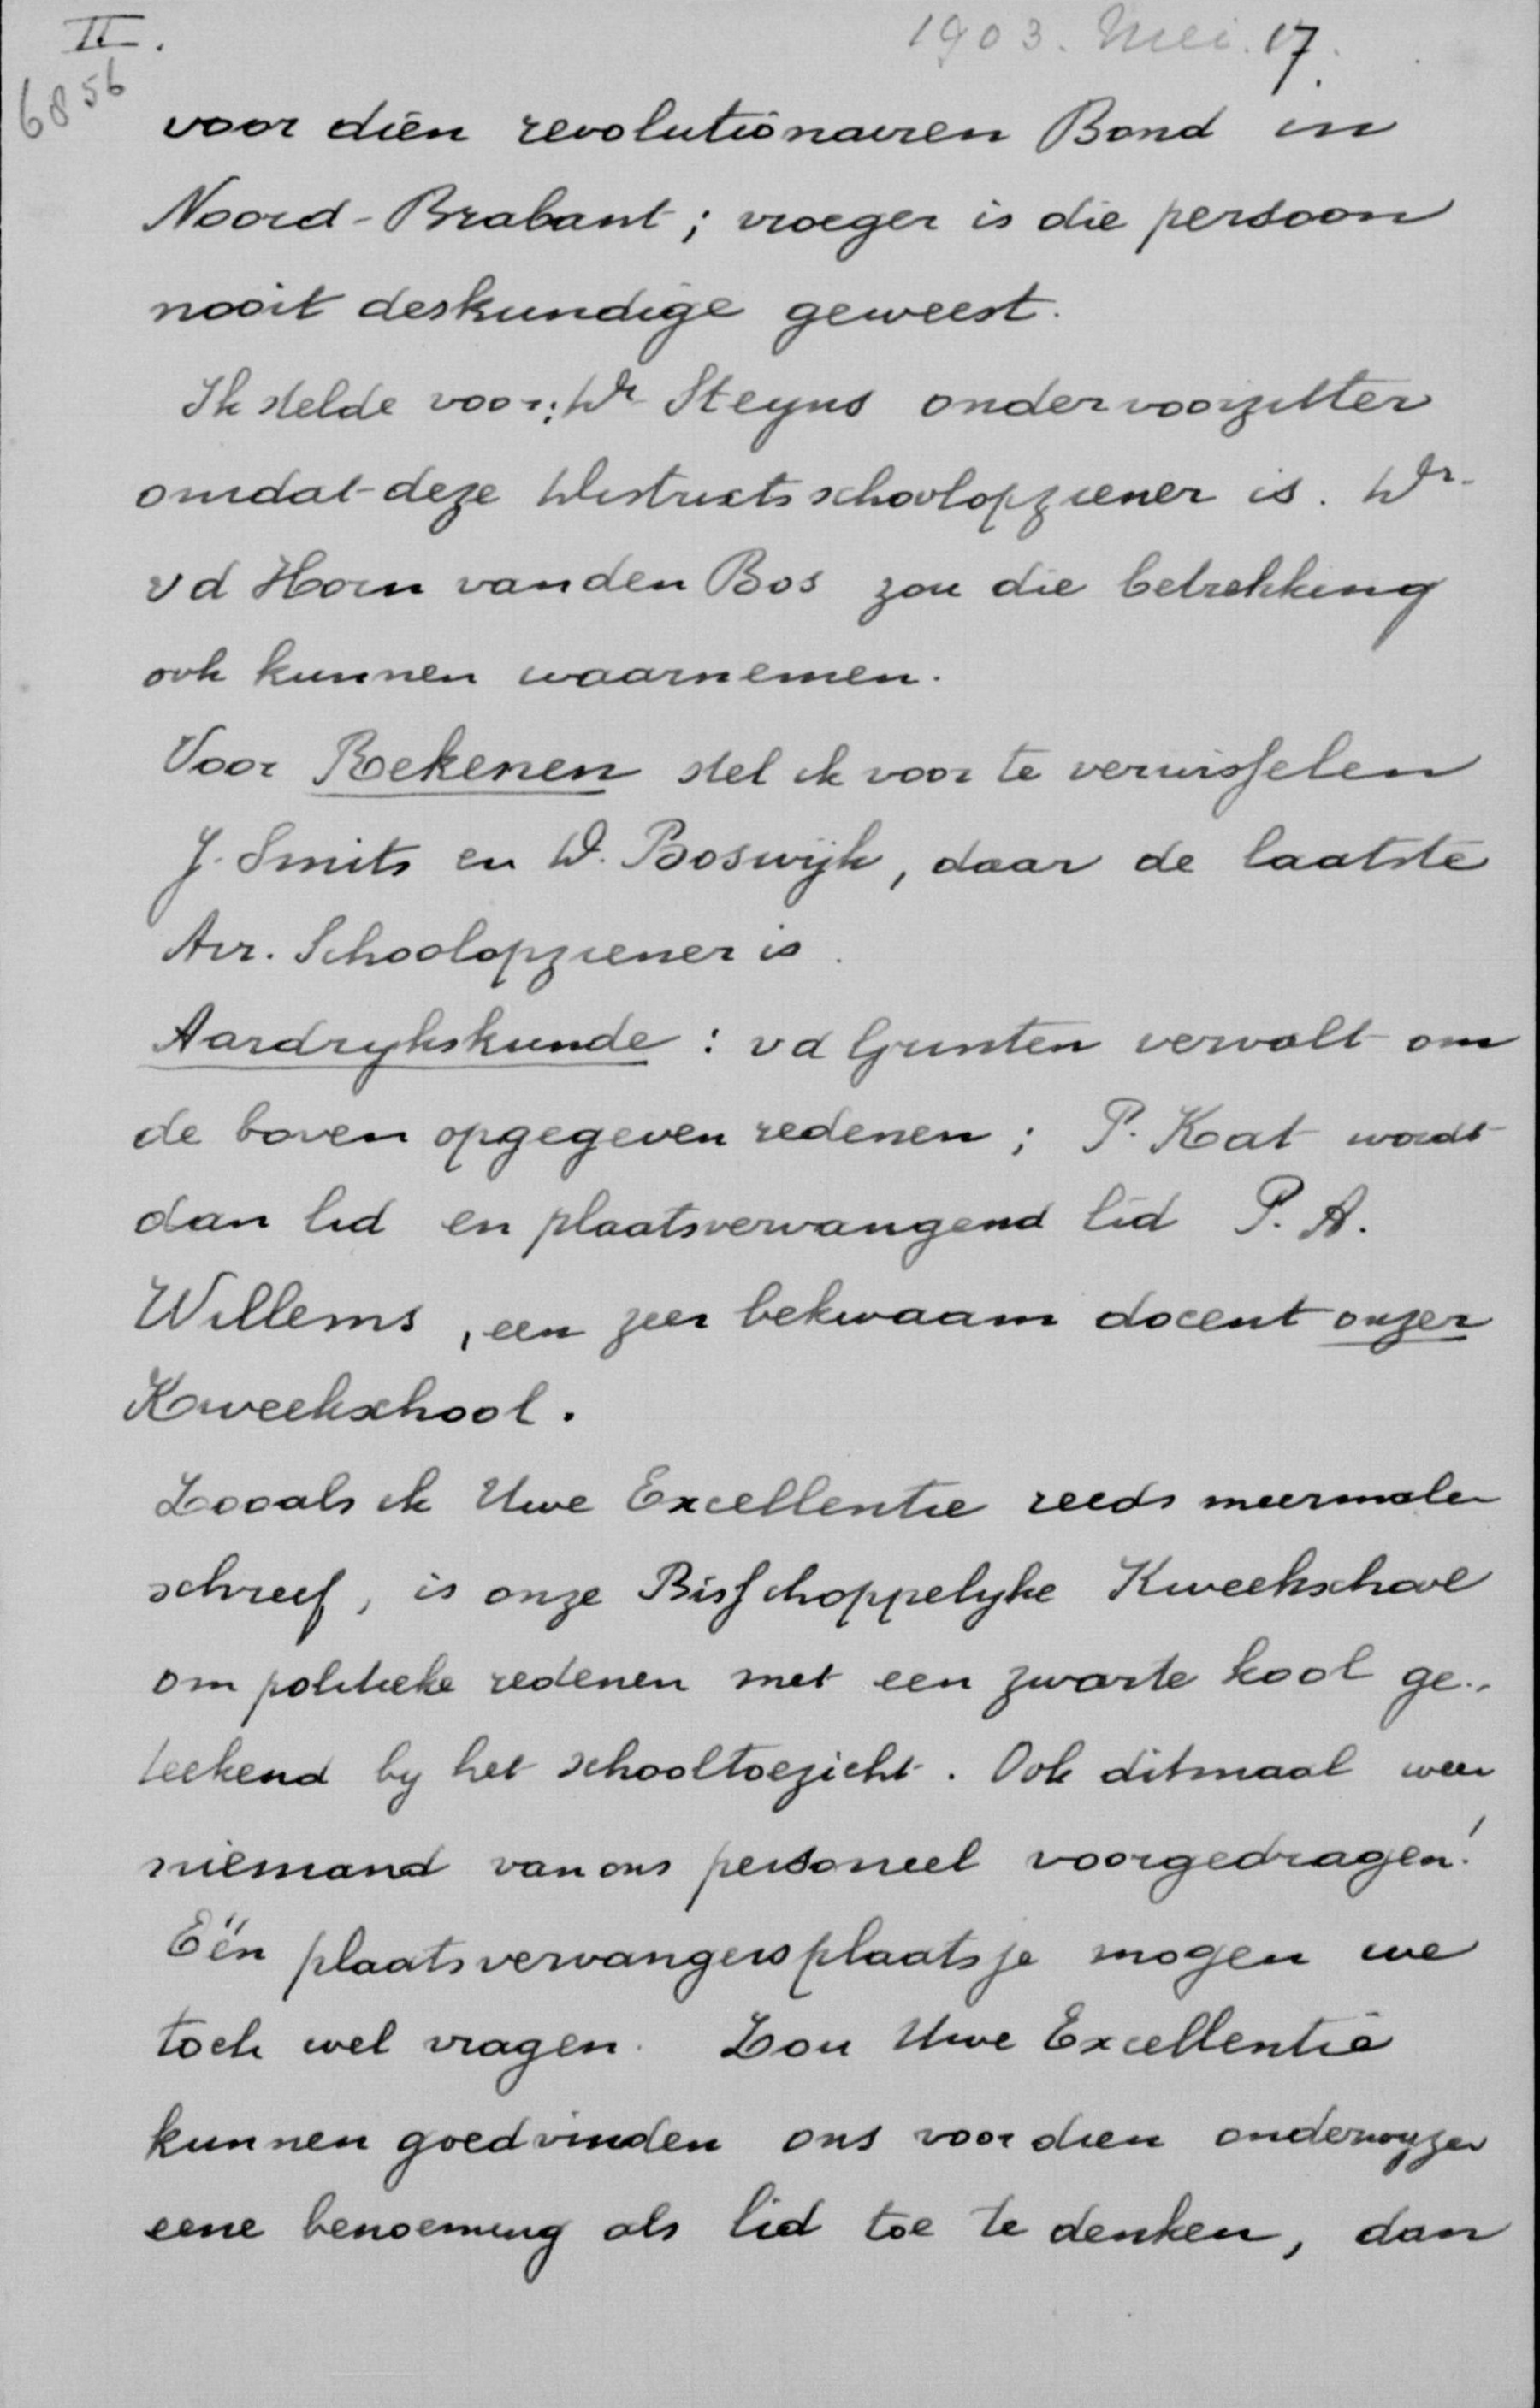 II.
1903. Mei. 17.
6856
voor dien revolutionairen Bond in
Noord-Brabant; vroeger is die persoon
nooit deskundige geweest.
Ik stelde voor: Dr Steyns ondervoorzitter
omdat deze Districtsschoolopziener is. Dr.
vd Hoen van den Bos zou die betrekking
ook kunnen waarnemen.
Voor Rekenen stel ik voor te verwisselen
J. Smits en D. Boswijk, daar de laatste
Arr. Schoolopziener is.
Aardrykskunde: vd Grinten vervalt om
de boven opgegeven redenen; P. Kat wordt
dan lid en plaatsvervangend lid P. A.
Willems, een zeer bekwaam docent onzer
Kweekschool.
Zooals ik Uwe Excellentie reeds meermalen
schreef, is onze Bisschoppelyke Kweekschool
om politieke redenen met een zwarte kool ge-
teekend by het schooltoezicht. Ook ditmaal weer
niemand van ons personeel voorgedragen!
Eén plaatsvervangersplaatsje mogen we
toch wel vragen. Zou Uwe Excellentie
kunnen goedvinden ons voor dien onderwyzer
eene benoeming als lid toe te denken, dan